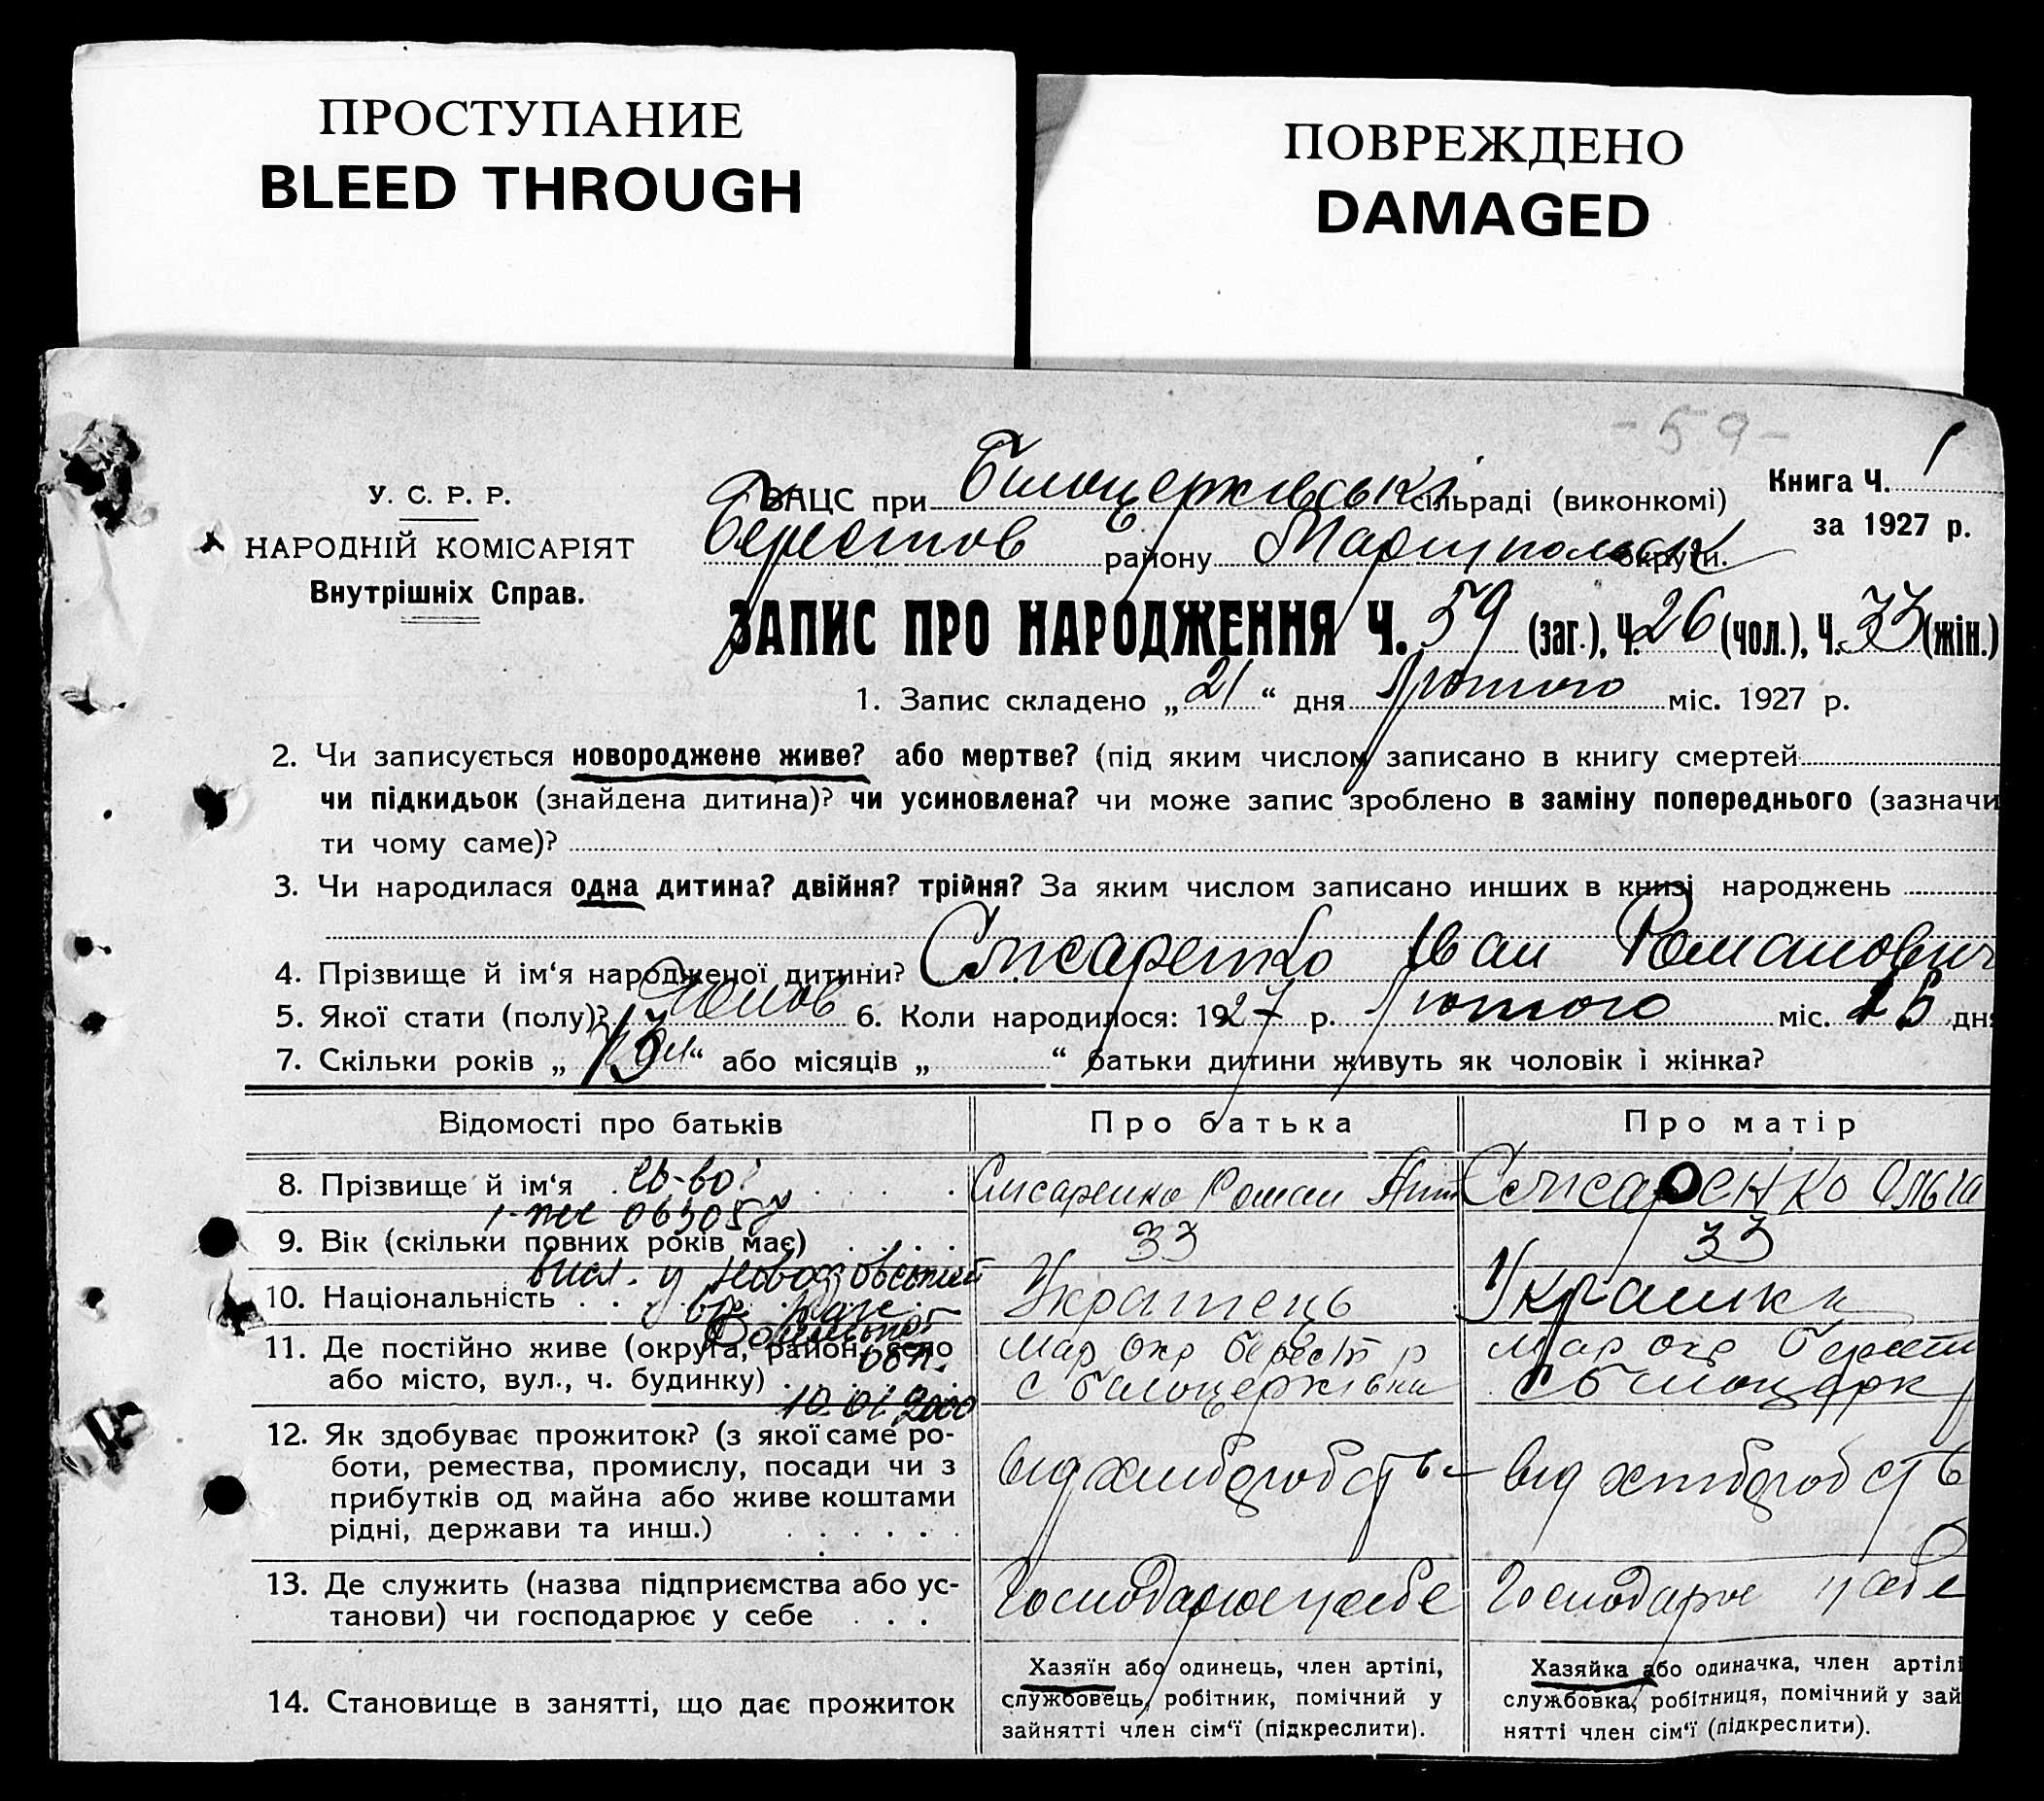 ПРОСТУПАНИЕ
BLEED THROUGH
ПОВРЕЖДЕНО
DAMAGED
-59-
У. С. Р. Р.
НАРОДНІЙ КОМІСАРІЯТ
Внутрішніх Справ.
ЗАЦС при Білоцерківські сільраді (виконкомі)
Книга Ч. 1
за 1927 р.
Берестов району Маріупольск округи.
ЗАПИС ПРО НАРОДЖЕННЯ Ч. 59 (заг.), Ч. 26 (чол.), Ч. 33 (жін.)
1. Запис складено „21“ дня Лютого міс. 1927 р.
2. Чи записується новороджене живе? або мертве? (під яким числом записано в книгу смертей
чи підкидьок (знайдена дитина)? чи усиновлена? чи може запис зроблено в заміну попереднього (зазначи
ти чому саме)?
3. Чи народилася одна дитина? двійня? трійня? За яким числом записано инших в книзі народжень
4. Прізвище й ім‘я народженої дитини? Слюсаренко Іван Романович
5. Якої стати (полу)? Чолов 6. Коли народилося: 1927 р. Лютого міс. 15 дня
7. Скільки років „13“ або місяців „ “ батьки дитини живуть як чоловік і жінка?
Відомості про батьків
Про батька
Про матір
8. Прізвище й ім‘я
св-во
Слюсаренко Роман Ант
Слюсаренко Ольга
І-НО 063057
9. Вік (скільки повних років має)
33
33
вид. у Новоазовський
10. Національність
Українець
Українка
Донецької
обл.
11. Де постійно живе (округа, район, село
або місто, вул., ч. будинку)
Мар окр Берест р
с Білоцерківка
Мар окр Берест
с Білоцерк
10.01.2000
12. Як здобуває прожиток? (з якої саме ро-
боти, ремества, промислу, посади чи з
прибутків од майна або живе коштами
рідні, держави та инш.)
від хліборобств
від хліборобств
13. Де служить (назва підприємства або ус-
танови) чи господарює у себе
Господарює у себе
Господарює у себе
14. Становище в занятті, що дає прожиток
Хазяїн або одинець, член артілі,
службовець, робітник, помічний у
зайнятті член сім‘ї (підкреслити).
Хазяйка або одиначка, член артілі
службовка, робітниця, помічний у зай
нятті член сім‘ї (підкреслити).